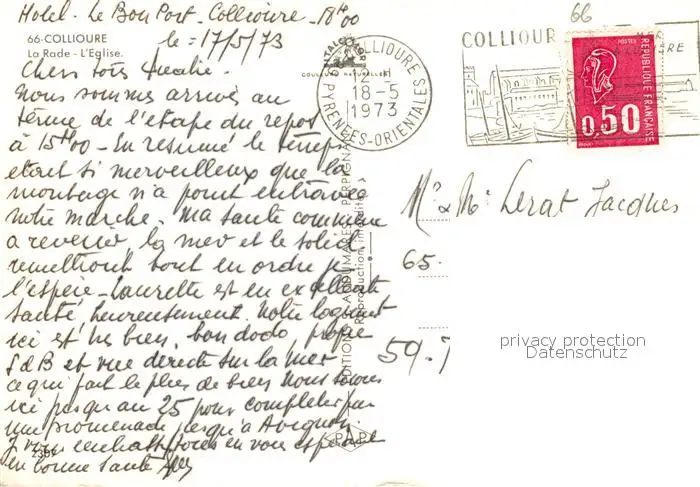 Hotel. Le Bon Port. Collioure - 18h00
le = 17/5/73
66-COLLIOURE
La Rade - L'Eglise.
Chers tous
Nous sommes arrivés au
terme de l'étape du repos
à 15h00 - En résumé le temps
etait si merveilleux que la
montage n'a point entravée
notre marche. Ma santé commence
a revenir, la mer et le soleil
remettront tout en ordre je
l'espère - Laurette est en excellente
santé, heureusement. Notre logement
ici est bien, bon dodo, propre
SdB et vue directe sur la mer
ce qui fait le plus de bien. Nous sommes
ici jusqu'au 25 pour completer par
une promenade jusqu'à Avignon.
Je vous embrasse tous en vous espérant
en bonne santé
COULEURS NATURELLES
COLLIOURE
18-5
1973
PYRENEES-ORIENTALES
66
COLLIOUR
POSTES
REPUBLIQUE FRANÇAISE
0,50
Mr & Me Lerat Jacques
65.
59.7
EDITIONS
PERPIGNAN
Reproduction interdite
PAP
privacy protection
Datenschutz